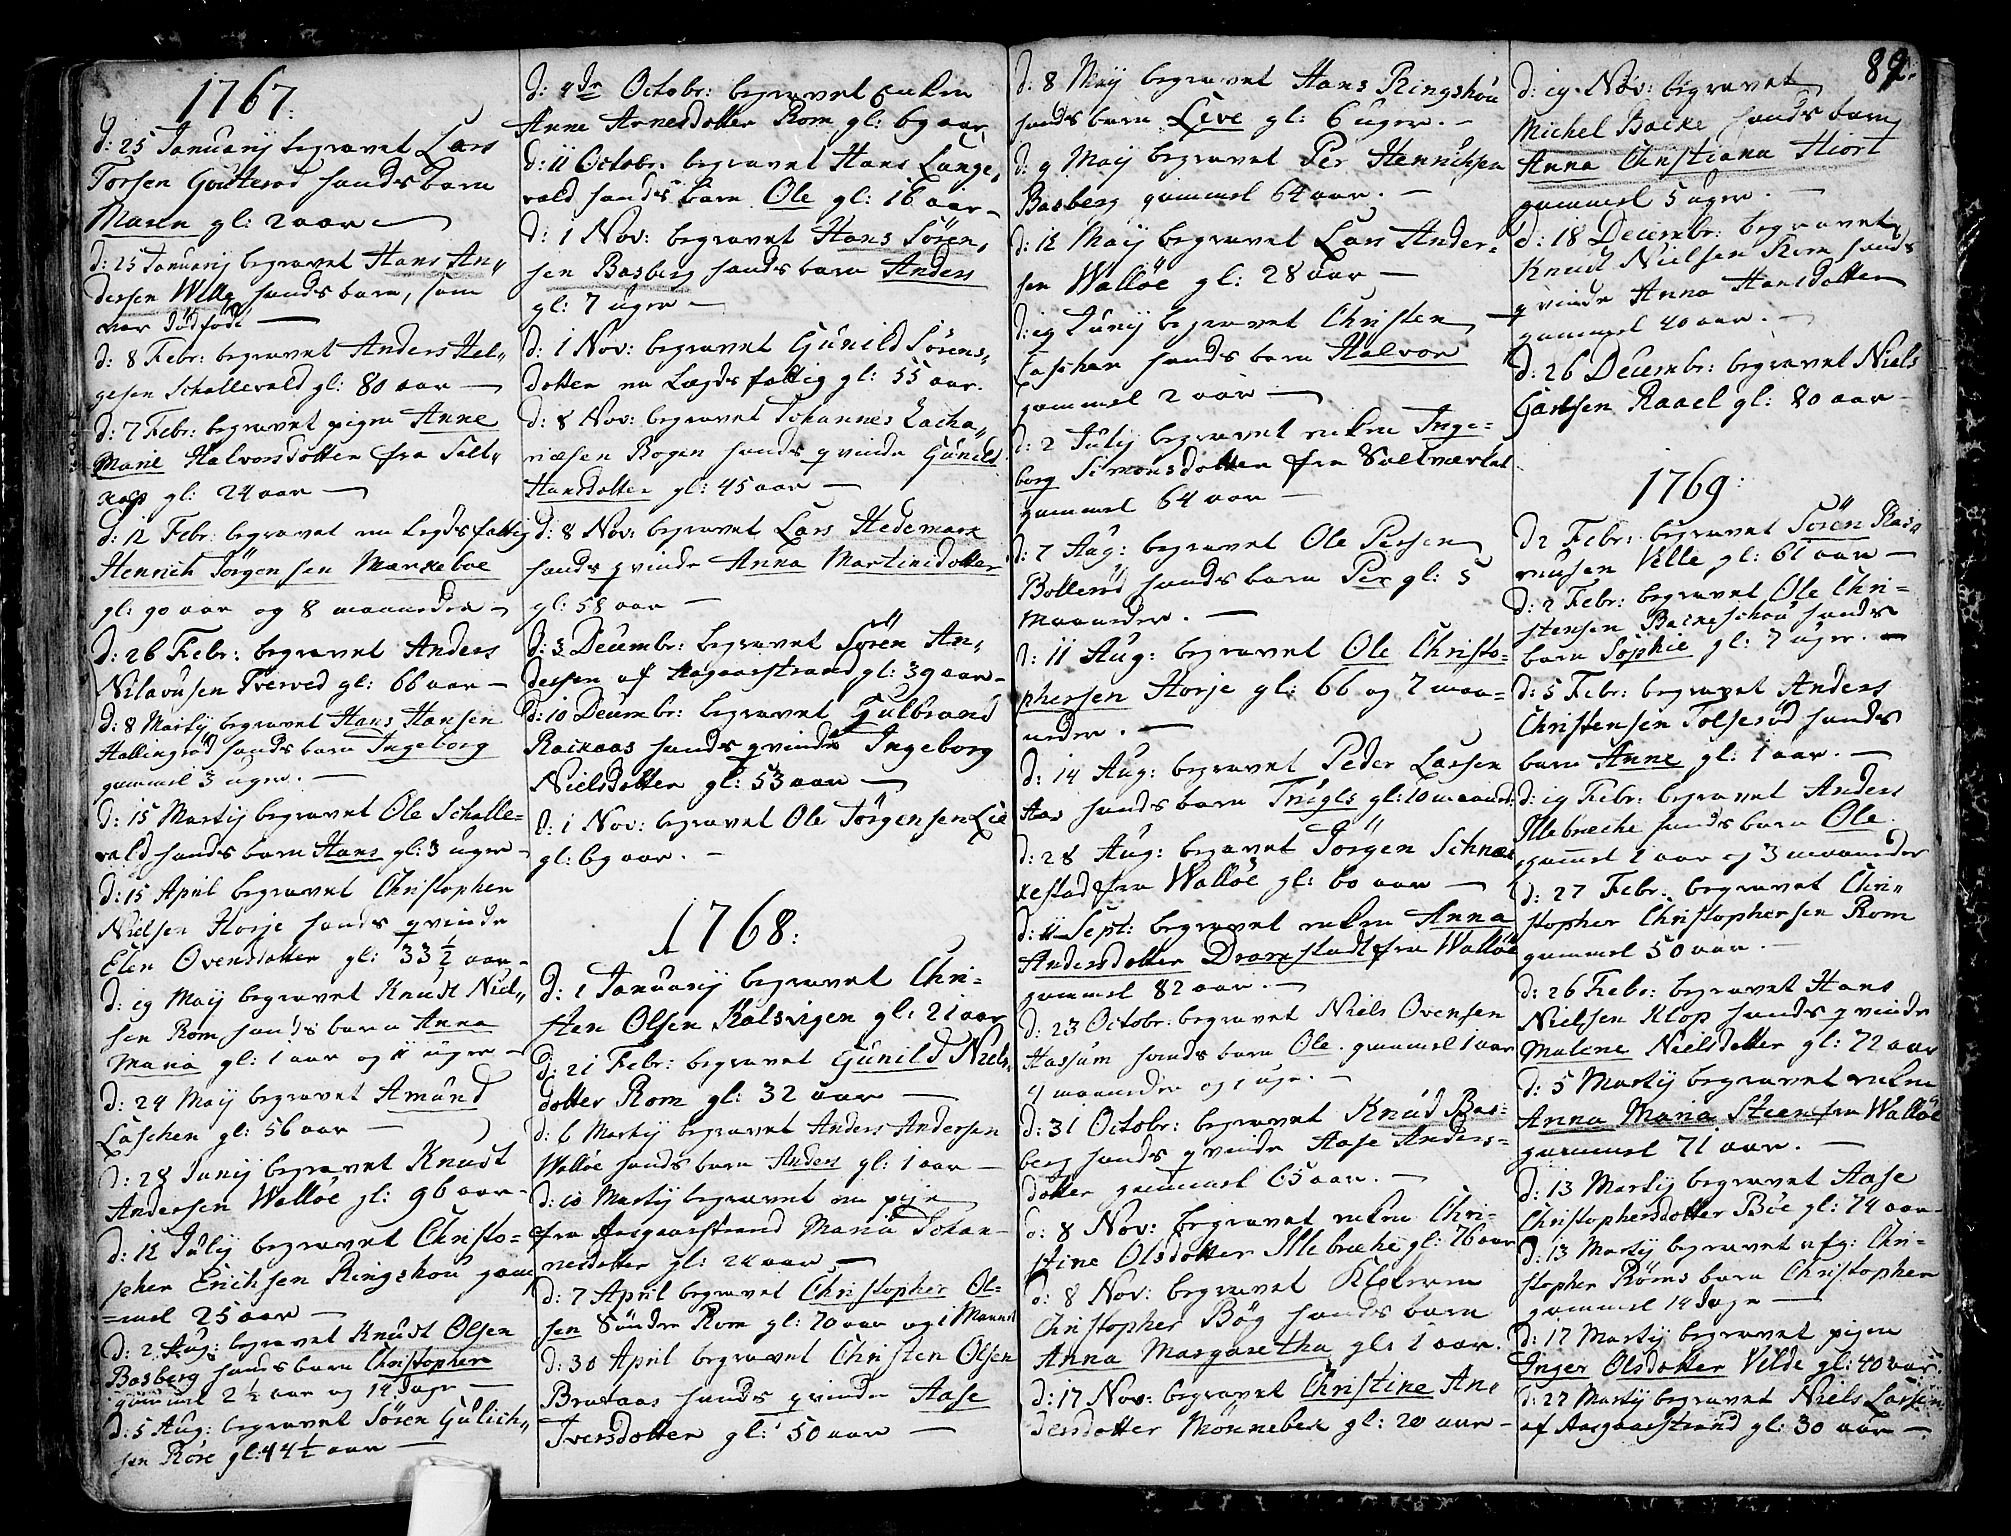 1767.
d: 25 Januarij begravet Lars
Torsen Gouterød hands barn
Maren gl: 2 aar
d: 25 Januarij begravet Hans An„
dersen Welle hands barn, som
var dödfödt
d: 8 Febr: begravet Anders Hel„
gesen Schallevald gl: 80 aar
d: 7 Febr: begravet pigen Anne
Marie Halvorsdotter fra Selt„
gl: 24 aar
d: 12 Febr: begravet en legds fattig
Henrich Jörgensen Markeboe
gl: 90 aar og 8 maaneder
d: 26 Febr: begravet Anders
Nilavusen Tverved gl: 66 aar
d: 8 Martij begravet Hans Hansen
Hallingrød hands barn Ingeborg
gammel 3 uger.
d: 15 Martij begravet Ole Schalle=
vald hands barn Hans gl: 3 uger
d: 15 April begravet Christopher
Nielsen Horje hands qvinde
Elen Ovensdotter gl: 33 ½ aar
d: 19 Maij begravet Knudt Niel„
sen Rom hands barn Anna
Maria gl: 1 aar og 11 uger
d: 24 Maij begravet Amund
Laschen gl: 56 aar
d: 28 Junij begravet Knudt
Andersen Walløe gl: 96 aar
d: 12 Julij begravet Christo=
pher Erichsen Ringshou gam
=mel 25 aar
d: 2 Aug: begravet Knudt Olsen
Basberg hands barn Christopher
gammel 2 ½ aar og 14 dage
d: 5 Aug: begravet Sören Gulich„
sen Röre gl: 44 ½ aar
d: 4de Octobr: begravet enken
Anne Arnesdotter Rom gl: 69 aar
d: 11 Octobr: begravet Hans Lange„
vald hands barn Ole gl: 16 aar
d: 1 Nov: begravet Hans Sören„
sen Basberg hands barn Anders
gl: 7 uger
d: 1 Nov: begravet Gunild Sörens„
dotter en Lægds fattig gl: 55 aar.
d: 8 Nov: begravet Johannes Zacha„
riæsen Rogen hands qvinde Gunild
Hansdotter gl: 45 aar
d: 8 Nov: begravet Lars Hedemark
hands qvinde Anna Martinsdotter
gl: 58 aar
d: 3 Decembr: begravet Sören An„
dersen af Aagaarstrand gl: 39 aar
d: 10 Decembr: begravet Gulbrand
Rackaas hands qvinde Ingeborg
Nielsdotter gl: 53 aar
d: 1 Nov: begravet Ole Jörgensen Lie
gl: 69 aar.
1768:
d: 1 Januarij begravet Chri=
sten Olsen Kalsvigen gl: 21 aar
d: 21 Febr: begravet Gunild Niels„
dotter Rom gl: 32 aar
d: 6 Martij begravet Anders Andersen
Walløe hands barn Anders gl: 1 aar
d: 10 Martij begravet en pige
fra Aasgaarstrand Maria Johan=
nesdotter gl: 24 aar
d: 7 April begravet Christopher Ol=
sen Söndre Rom gl: 70 aar og 1 Maaned
d: 30 April begravet Christen Olsen
Brataas hands qvinde Aase
Iversdotter gl: 50 aar
d: 8 Maij begravet Hans Ringshou
hands barn Live gl: 6 uger.
d: 9 Maij begravet Per Henrichsen
Basberg gammel 64 aar.
d: 12 Maij begravet Lars Ander=
sen Walløe gl: 28 aar
d: 19 Junij begravet Christen
Laschen hands barn Halvor
gammel 2 aar
d: 2 Julij begravet enken Inge=
borg Simonsdotter fra Saltværket
gammel 64 aar
d: 7 Aug: begravet Ole Persen
Bollerød hands barn Per gl: 5
maaneder.
d: 11 Aug: begravet Ole Christo=
phersen Horje gl: 66 og 7 maa=
neder.
d: 14 Aug: begravet Peder Larsen
Aas hands barn Trigls gl: 10 maaned:
d: 28 Aug: begravet Jörgen Schnæ
kestad fra Walløe gl: 60 aar
d: 11 Sept: begravet enken Anna
Andersdotter Dramstadt fra Walløe
gammel 82 aar.
d: 23 Octobr: begravet Niels Ovensen
Hassum hands barn Ole gammel 1 aar
4 maaneder og 1 uge.
d: 31 Octobr: begravet Knud Bas=
berg hands qvinde Aase Anders=
dotter gammel 65 aar.
d: 8 Nov: begravet enken Chri=
stine Olsdotter Illebræche gl: 76 aar
d: 8 Nov: begravet Klokeren
Christopher Bög hands barn
Anna Margaretha gl: 1 aar.
d: 17 Nov: begravet Christine An=
dersdotter Mönnebek gl: 20 aar
89.
d: 19. Nov: begravet
Michel Backe hands barn
Anna Christiana Hiort
gammel 5 uger.
d: 18 Decembr: begravet
Knudt Nielsen Rom hands
qvinde Anna Hansdotter
gammel 40 aar.
d: 26 Decembr: begravet Niels
Carlsen Raael gl: 80 aar
1769:
d 2 Febr: begravet Sören Ras„
musen Velle gl: 61 aar
d: 2 Febr: begravet Ole Chri=
stensen Backeschou hands
barn Sophie gl: 7 uger.
d: 5 Febr: begravet Anders
Christensen Tolserød hands
barn Anne gl: 1 aar.
d: 19 Febr: begravet Anders
Illebreche hands barn Ole
gammel 1 aar og 3 maaneder
d: 27 Febr: begravet Chri„
stopher Christophersen Rom
gammel 50 aar.
d: 26 Febr: begravet Hans
Nielsen Klop hands qvinde
Malene Nielsdotter gl: 72 aar
d: 5 Martij begravet enken
Anna Maria Steen fra Walløe
gammel 71 aar.
d: 13 Martij begravet Aase
Christophersdotter Böe gl: 74 aar
d: 13 Martij begravet afg: Chri=
stopher Röms barn Christopher
gammel 14 dage
d: 17 Martij begravet pigen
Inger Olsdotter Velde gl: 40 aar
d: 27 Martij begravet Niels Larsen
af Aasgaarstrand gl: 30 aar